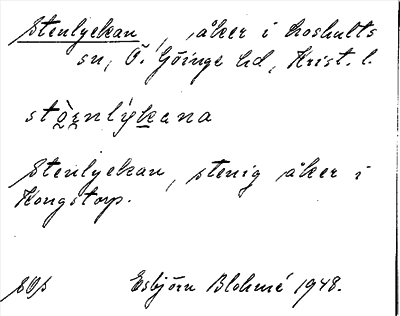 Stenlyckan, åker i Loshults
sn, Ö. Göinge hd, Krist. l.
Stenlyckan, stenig åker i
Kongstorp.
Esbjörn Blohmé 1948.